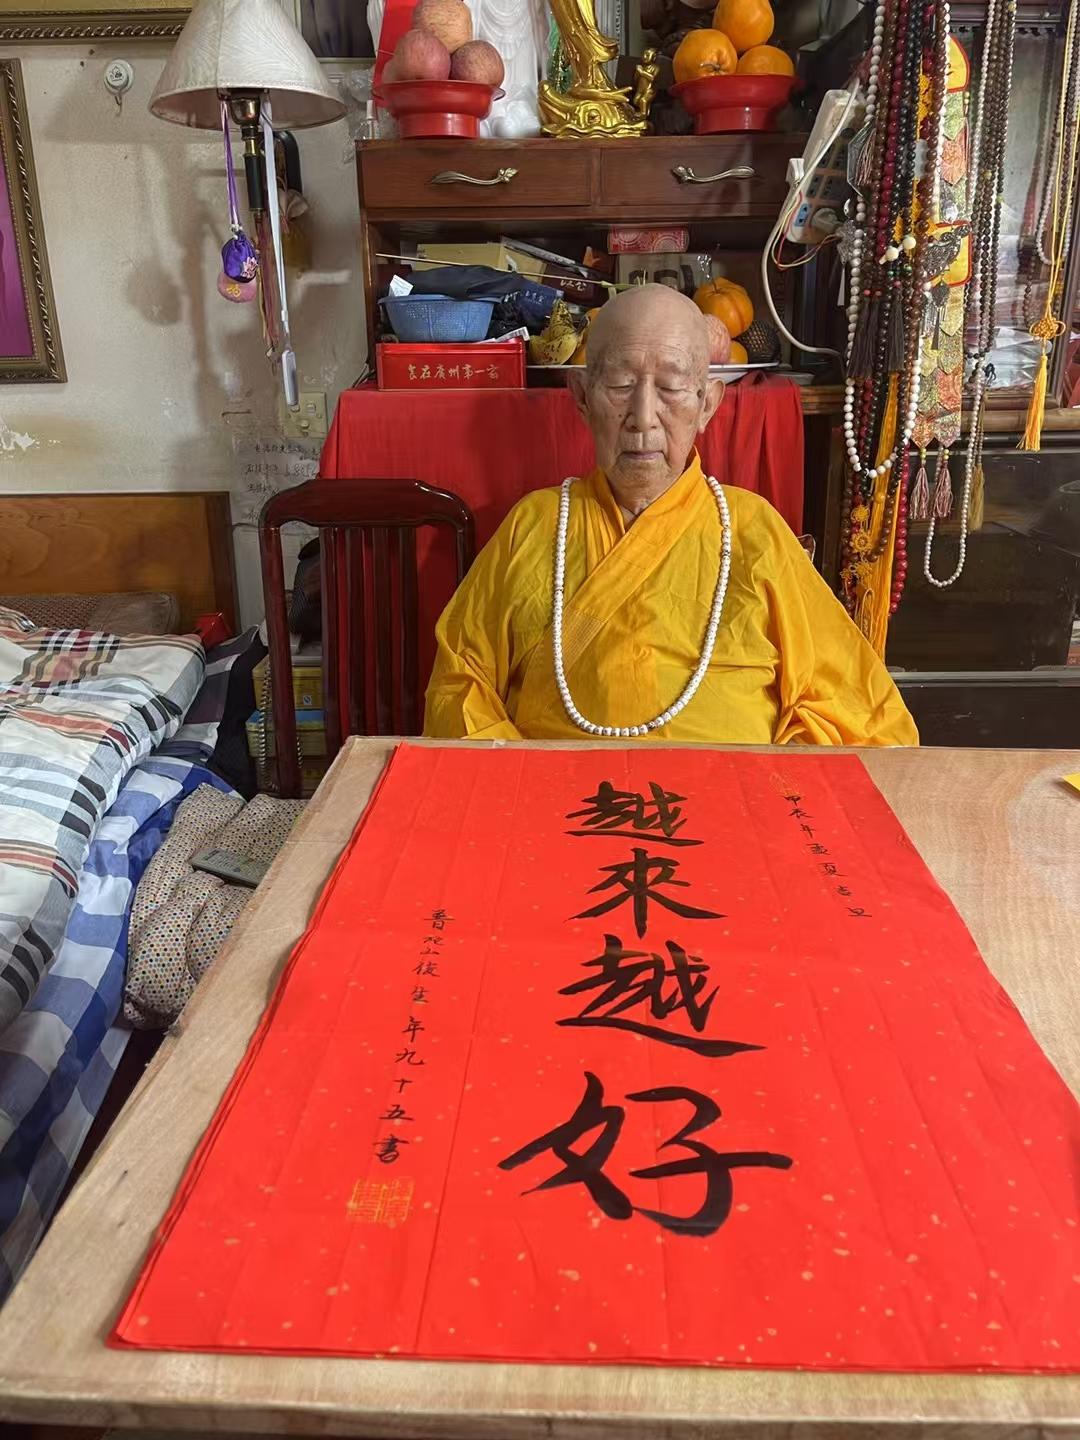 甲辰年孟夏吉旦
越來越好
普陀山後生年九十五書
食在廣州第一家
福